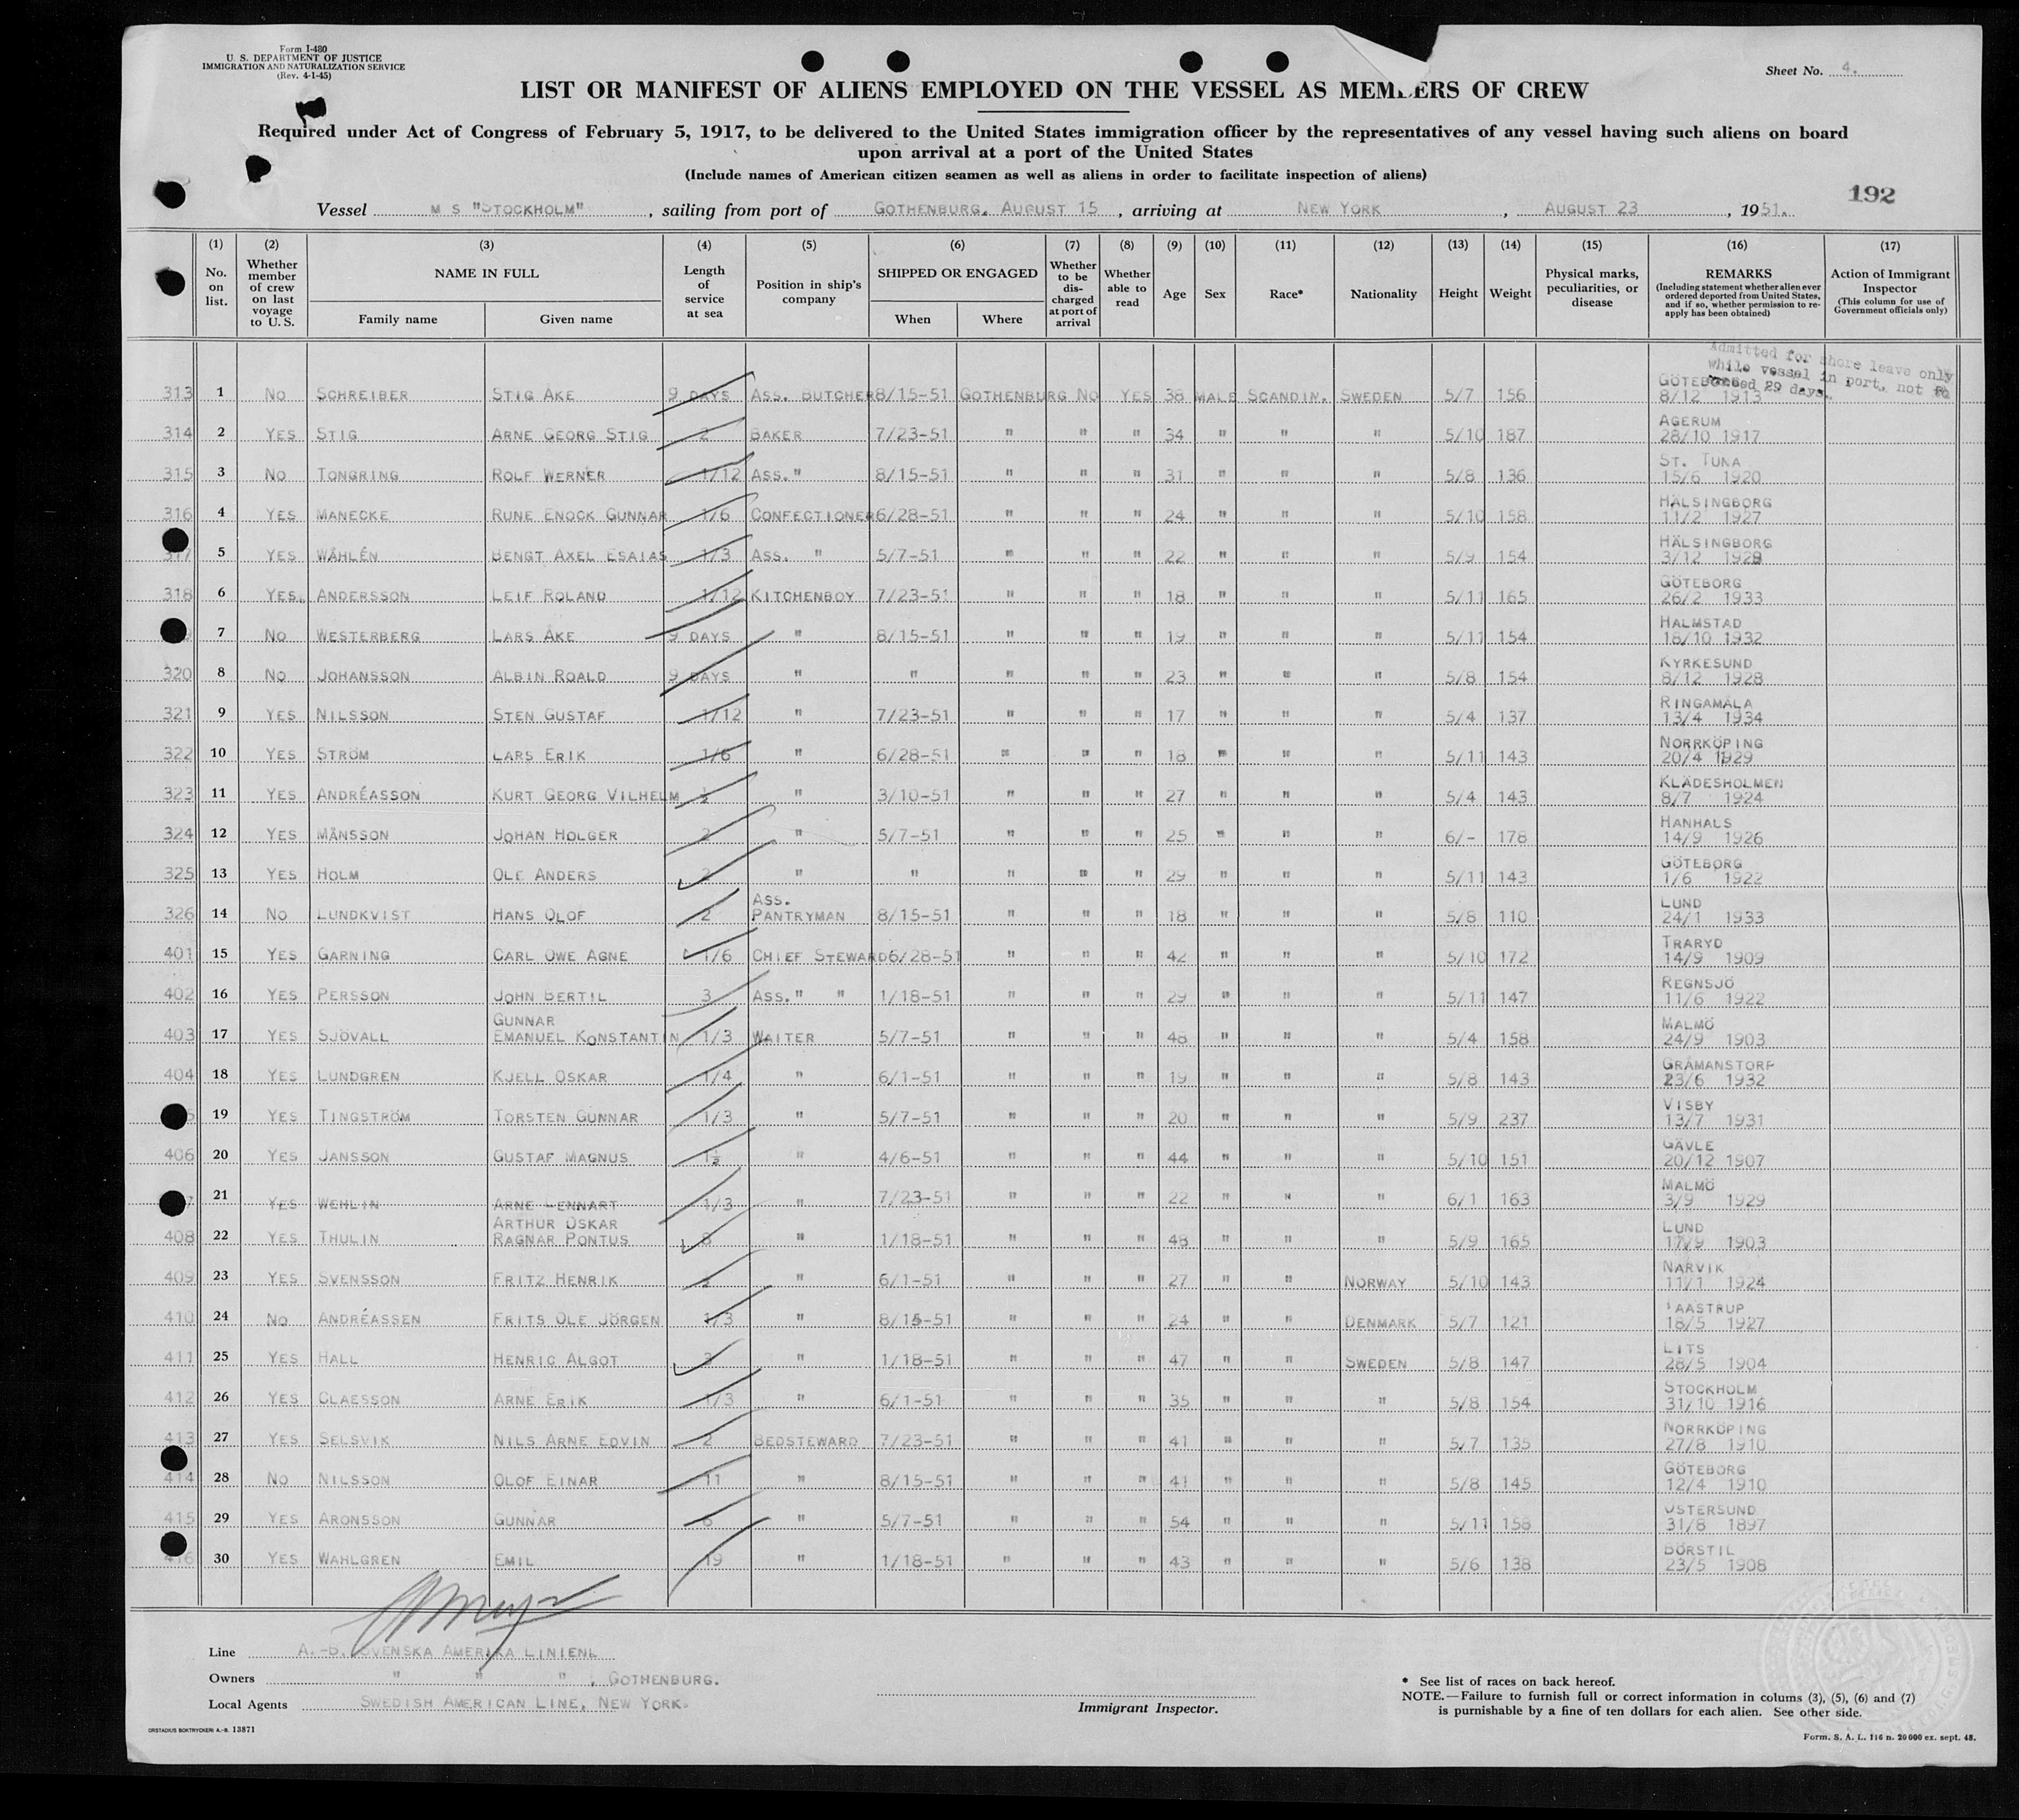 Form I-480
U. S. DEPARTMENT OF JUSTICE
IMMIGRATION AND NATURALIZATION SERVICE
(Rev. 4-1-45)
Sheet No. 4.
LIST OR MANIFEST OF ALIENS EMPLOYED ON THE VESSEL AS MEMBERS OF CREW
Required under Act of Congress of February 5, 1917, to be delivered to the United States immigration officer by the representatives of any vessel having such aliens on board
upon arrival at a port of the United States
(Include names of American citizen seamen as well as aliens in order to facilitate inspection of aliens)
192
Vessel M S "STOCKHOLM", sailing from port of GOTHENBURG, AUGUST 15, arriving at NEW YORK, AUGUST 23, 1951.
(1) No. on list. (2) Whether member of crew on last voyage to U. S. (3) NAME IN FULL Family name Given name (4) Length of service at sea (5) Position in ship's company (6) SHIPPED OR ENGAGED When Where (7) Whether to be discharged at port of arrival (8) Whether able to read (9) Age (10) Sex (11) Race* (12) Nationality (13) Height (14) Weight (15) Physical marks, peculiarities, or disease (16) REMARKS (Including statement whether alien ever ordered deported from United States, and if so, whether permission to re-apply has been obtained) (17) Action of Immigrant Inspector (This column for use of Government officials only)
Admitted for shore leave only
while vessel in port, not to
exceed 29 days.
313 1 NO SCHREIBER STIG ÅKE 9 DAYS ASS. BUTCHER 8/15-51 GOTHENBURG NO YES 38 MALE SCANDIN. SWEDEN 5/7 156 GÖTEBORG 8/12 1913
314 2 YES STIG ARNE GEORG STIG 2 BAKER 7/23-51 " " " 34 " " " 5/10 187 AGERUM 28/10 1917
315 3 NO TONGRING ROLF WERNER 1/12 ASS. " 8/15-51 " " " 31 " " " 5/8 136 ST. TUNA 15/6 1920
316 4 YES MANECKE RUNE ENOCK GUNNAR 1/6 CONFECTIONER 6/28-51 " " " 24 " " " 5/10 158 HÄLSINGBORG 11/2 1927
317 5 YES WÅHLÉN BENGT AXEL ESAIAS 1/3 ASS. " 5/7-51 " " " 22 " " " 5/9 154 HÄLSINGBORG 3/12 1928
318 6 YES. ANDERSSON LEIF ROLAND 1/12 KITCHENBOY 7/23-51 " " " 18 " " " 5/11 165 GÖTEBORG 26/2 1933
7 NO WESTERBERG LARS ÅKE 9 DAYS " 8/15-51 " " " 19 " " " 5/11 154 HALMSTAD 18/10 1932
320 8 NO JOHANSSON ALBIN ROALD 9 DAYS " " " " " 23 " " " 5/8 154 KYRKESUND 8/12 1928
321 9 YES NILSSON STEN GUSTAF 1/12 " 7/23-51 " " " 17 " " " 5/4 137 RINGAMÅLA 13/4 1934
322 10 YES STRÖM LARS ERIK 1/6 " 6/28-51 " " " 18 " " " 5/11 143 NORRKÖPING 20/4 1929
323 11 YES ANDRÉASSON KURT GEORG VILHELM ½ " 3/10-51 " " " 27 " " " 5/4 143 KLÄDESHOLMEN 8/7 1924
324 12 YES MÅNSSON JOHAN HOLGER 2 " 5/7-51 " " " 25 " " " 6/- 178 HANHALS 14/9 1926
325 13 YES HOLM OLE ANDERS 2 " " " " " 29 " " " 5/11 143 GÖTEBORG 1/6 1922
326 14 NO LUNDKVIST HANS OLOF 2 ASS. PANTRYMAN 8/15-51 " " " 18 " " " 5/8 110 LUND 24/1 1933
401 15 YES GARNING CARL OWE AGNE 1/6 CHIEF STEWARD 6/28-51 " " " 42 " " " 5/10 172 TRARYD 14/9 1909
402 16 YES PERSSON JOHN BERTIL 3 ASS. " " 1/18-51 " " " 29 " " " 5/11 147 REGNSJÖ 11/6 1922
403 17 YES SJÖVALL GUNNAR EMANUEL KONSTANTIN 1/3 WAITER 5/7-51 " " " 48 " " " 5/4 158 MALMÖ 24/9 1903
404 18 YES LUNDGREN KJELL OSKAR 1/4 " 6/1-51 " " " 19 " " " 5/8 143 GRÅMANSTORP 23/6 1932
19 YES TINGSTRÖM TORSTEN GUNNAR 1/3 " 5/7-51 " " " 20 " " " 5/9 237 VISBY 13/7 1931
406 20 YES JANSSON GUSTAF MAGNUS 1½ " 4/6-51 " " " 44 " " " 5/10 151 GÄVLE 20/12 1907
21 YES WEHLIN ARNE LENNART 1/3 " 7/23-51 " " " 22 " " " 6/1 163 MALMÖ 3/9 1929
408 22 YES THULIN ARTHUR OSKAR RAGNAR PONTUS 8 " 1/18-51 " " " 48 " " " 5/9 165 LUND 17/9 1903
409 23 YES SVENSSON FRITZ HENRIK ½ " 6/1-51 " " " 27 " " NORWAY 5/10 143 NARVIK 11/1 1924
410 24 NO ANDRÉASSEN FRITS OLE JÖRGEN 1/3 " 8/15-51 " " " 24 " " DENMARK 5/7 121 AASTRUP 18/5 1927
411 25 YES HALL HENRIC ALGOT 3 " 1/18-51 " " " 47 " " SWEDEN 5/8 147 LITS 28/5 1904
412 26 YES CLAESSON ARNE ERIK 1/3 " 6/1-51 " " " 35 " " " 5/8 154 STOCKHOLM 31/10 1916
413 27 YES SELSVIK NILS ARNE EDVIN 2 BEDSTEWARD 7/23-51 " " " 41 " " " 5/7 135 NORRKÖPING 27/8 1910
414 28 NO NILSSON OLOF EINAR 11 " 8/15-51 " " " 41 " " " 5/8 145 GÖTEBORG 12/4 1910
415 29 YES ARONSSON GUNNAR 6 " 5/7-51 " " " 54 " " " 5/11 158 ÖSTERSUND 31/8 1897
416 30 YES WAHLGREN EMIL 19 " 1/18-51 " " " 43 " " " 5/6 138 BÖRSTIL 23/5 1908
Line A.-B. SVENSKA AMERIKA LINIEN
Owners " " ", GOTHENBURG.
Local Agents SWEDISH AMERICAN LINE, NEW YORK.
Immigrant Inspector.
* See list of races on back hereof.
NOTE.—Failure to furnish full or correct information in colums (3), (5), (6) and (7)
is purnishable by a fine of ten dollars for each alien. See other side.
ORSTADIUS BOKTRYCKERI A.-B. 13871
Form. S. A. L. 116 n. 20000 ex. sept. 48.